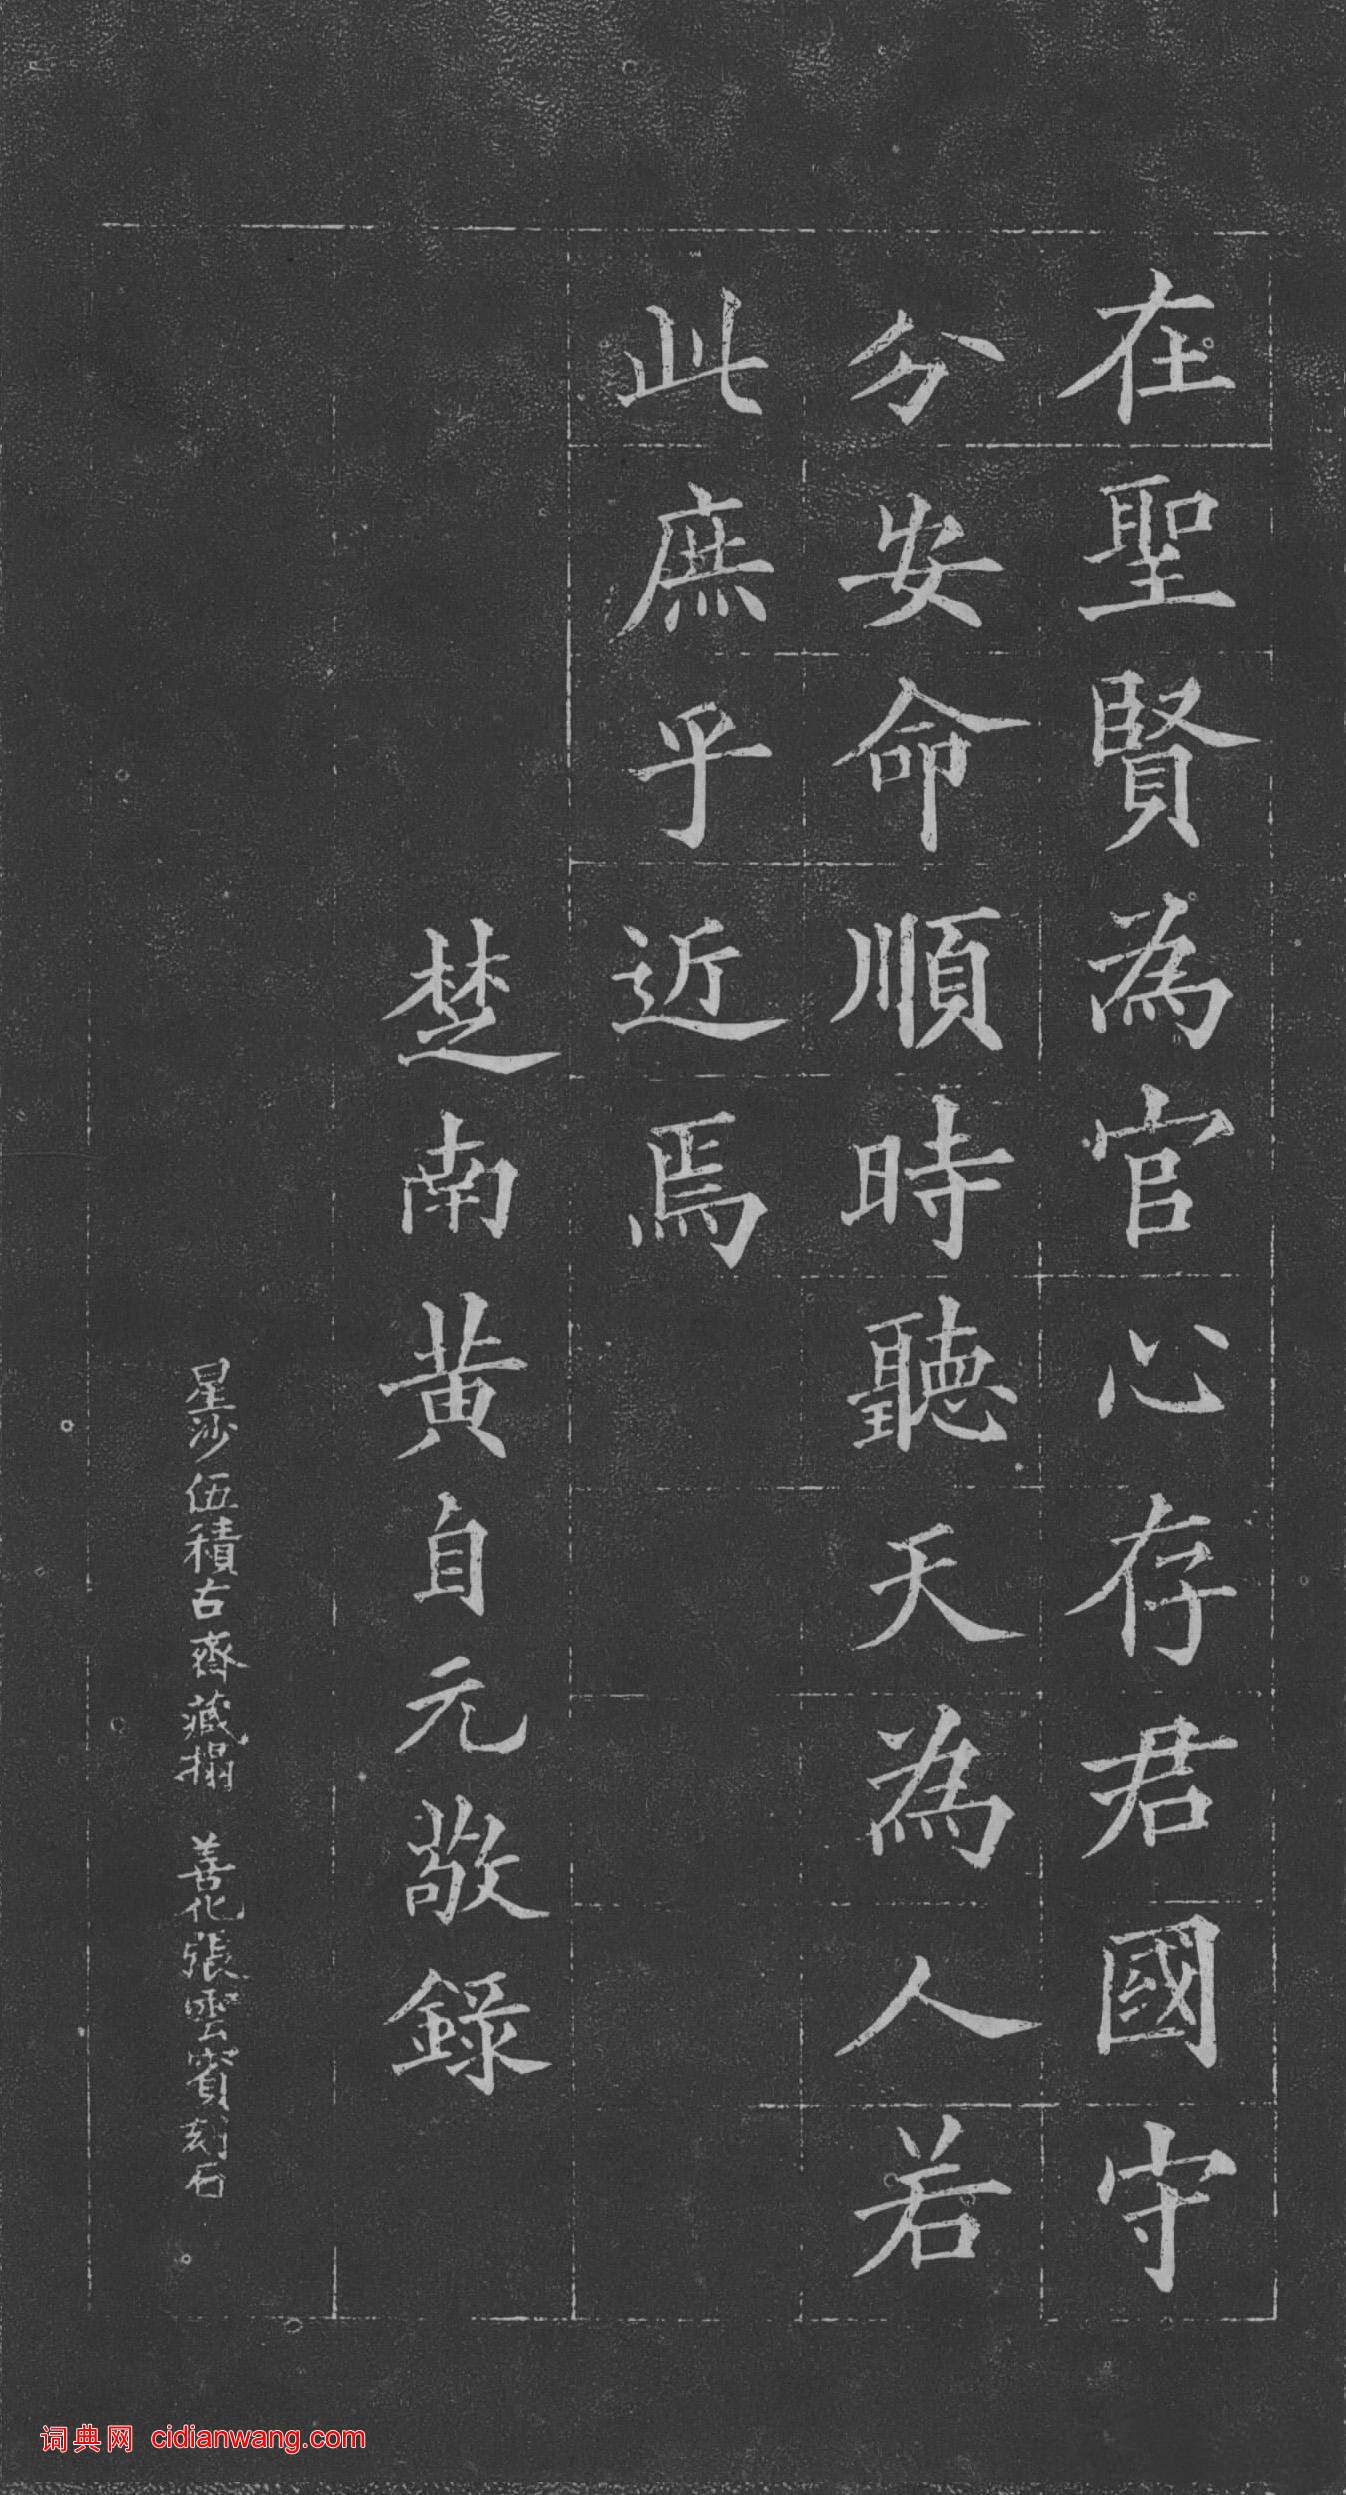 在聖賢為官心存君國守
分安命順時聽天為人若
此庶乎近焉
楚南黄自元敬錄
星沙伍積古齋藏搨 善化張雲賓刻石
词典网 cidianwang.com